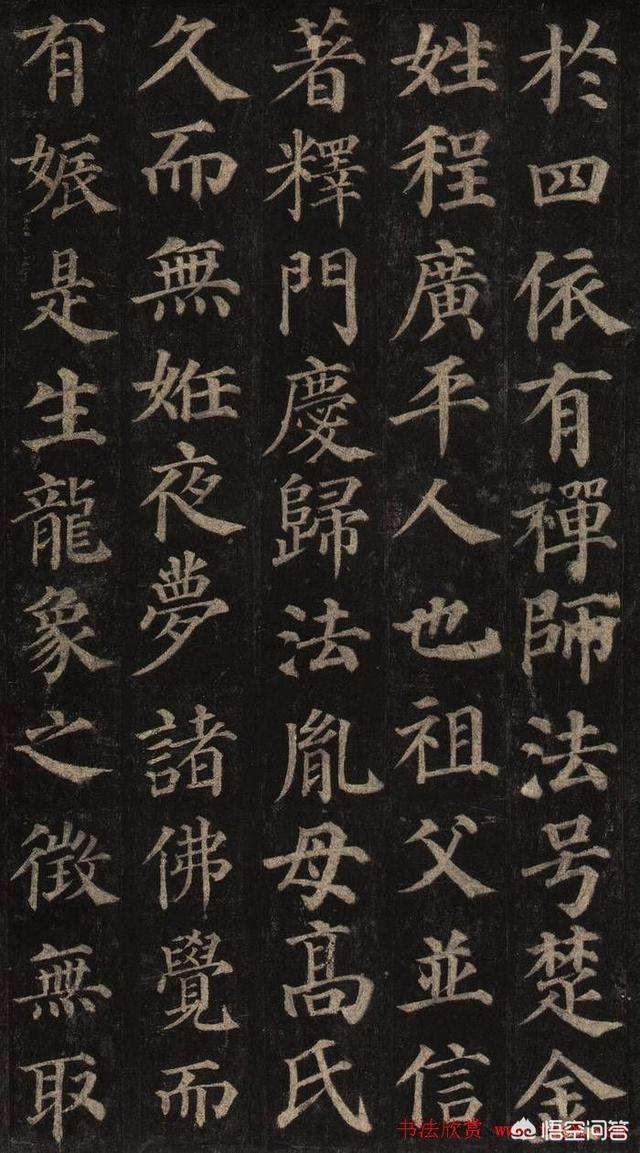 於四依有禪師法号楚金
姓程廣平人也祖父並信
著釋門慶歸法胤母高氏
久而無妊夜夢諸佛覺而
有娠是生龍象之徵無取
书法欣赏
悟空问答